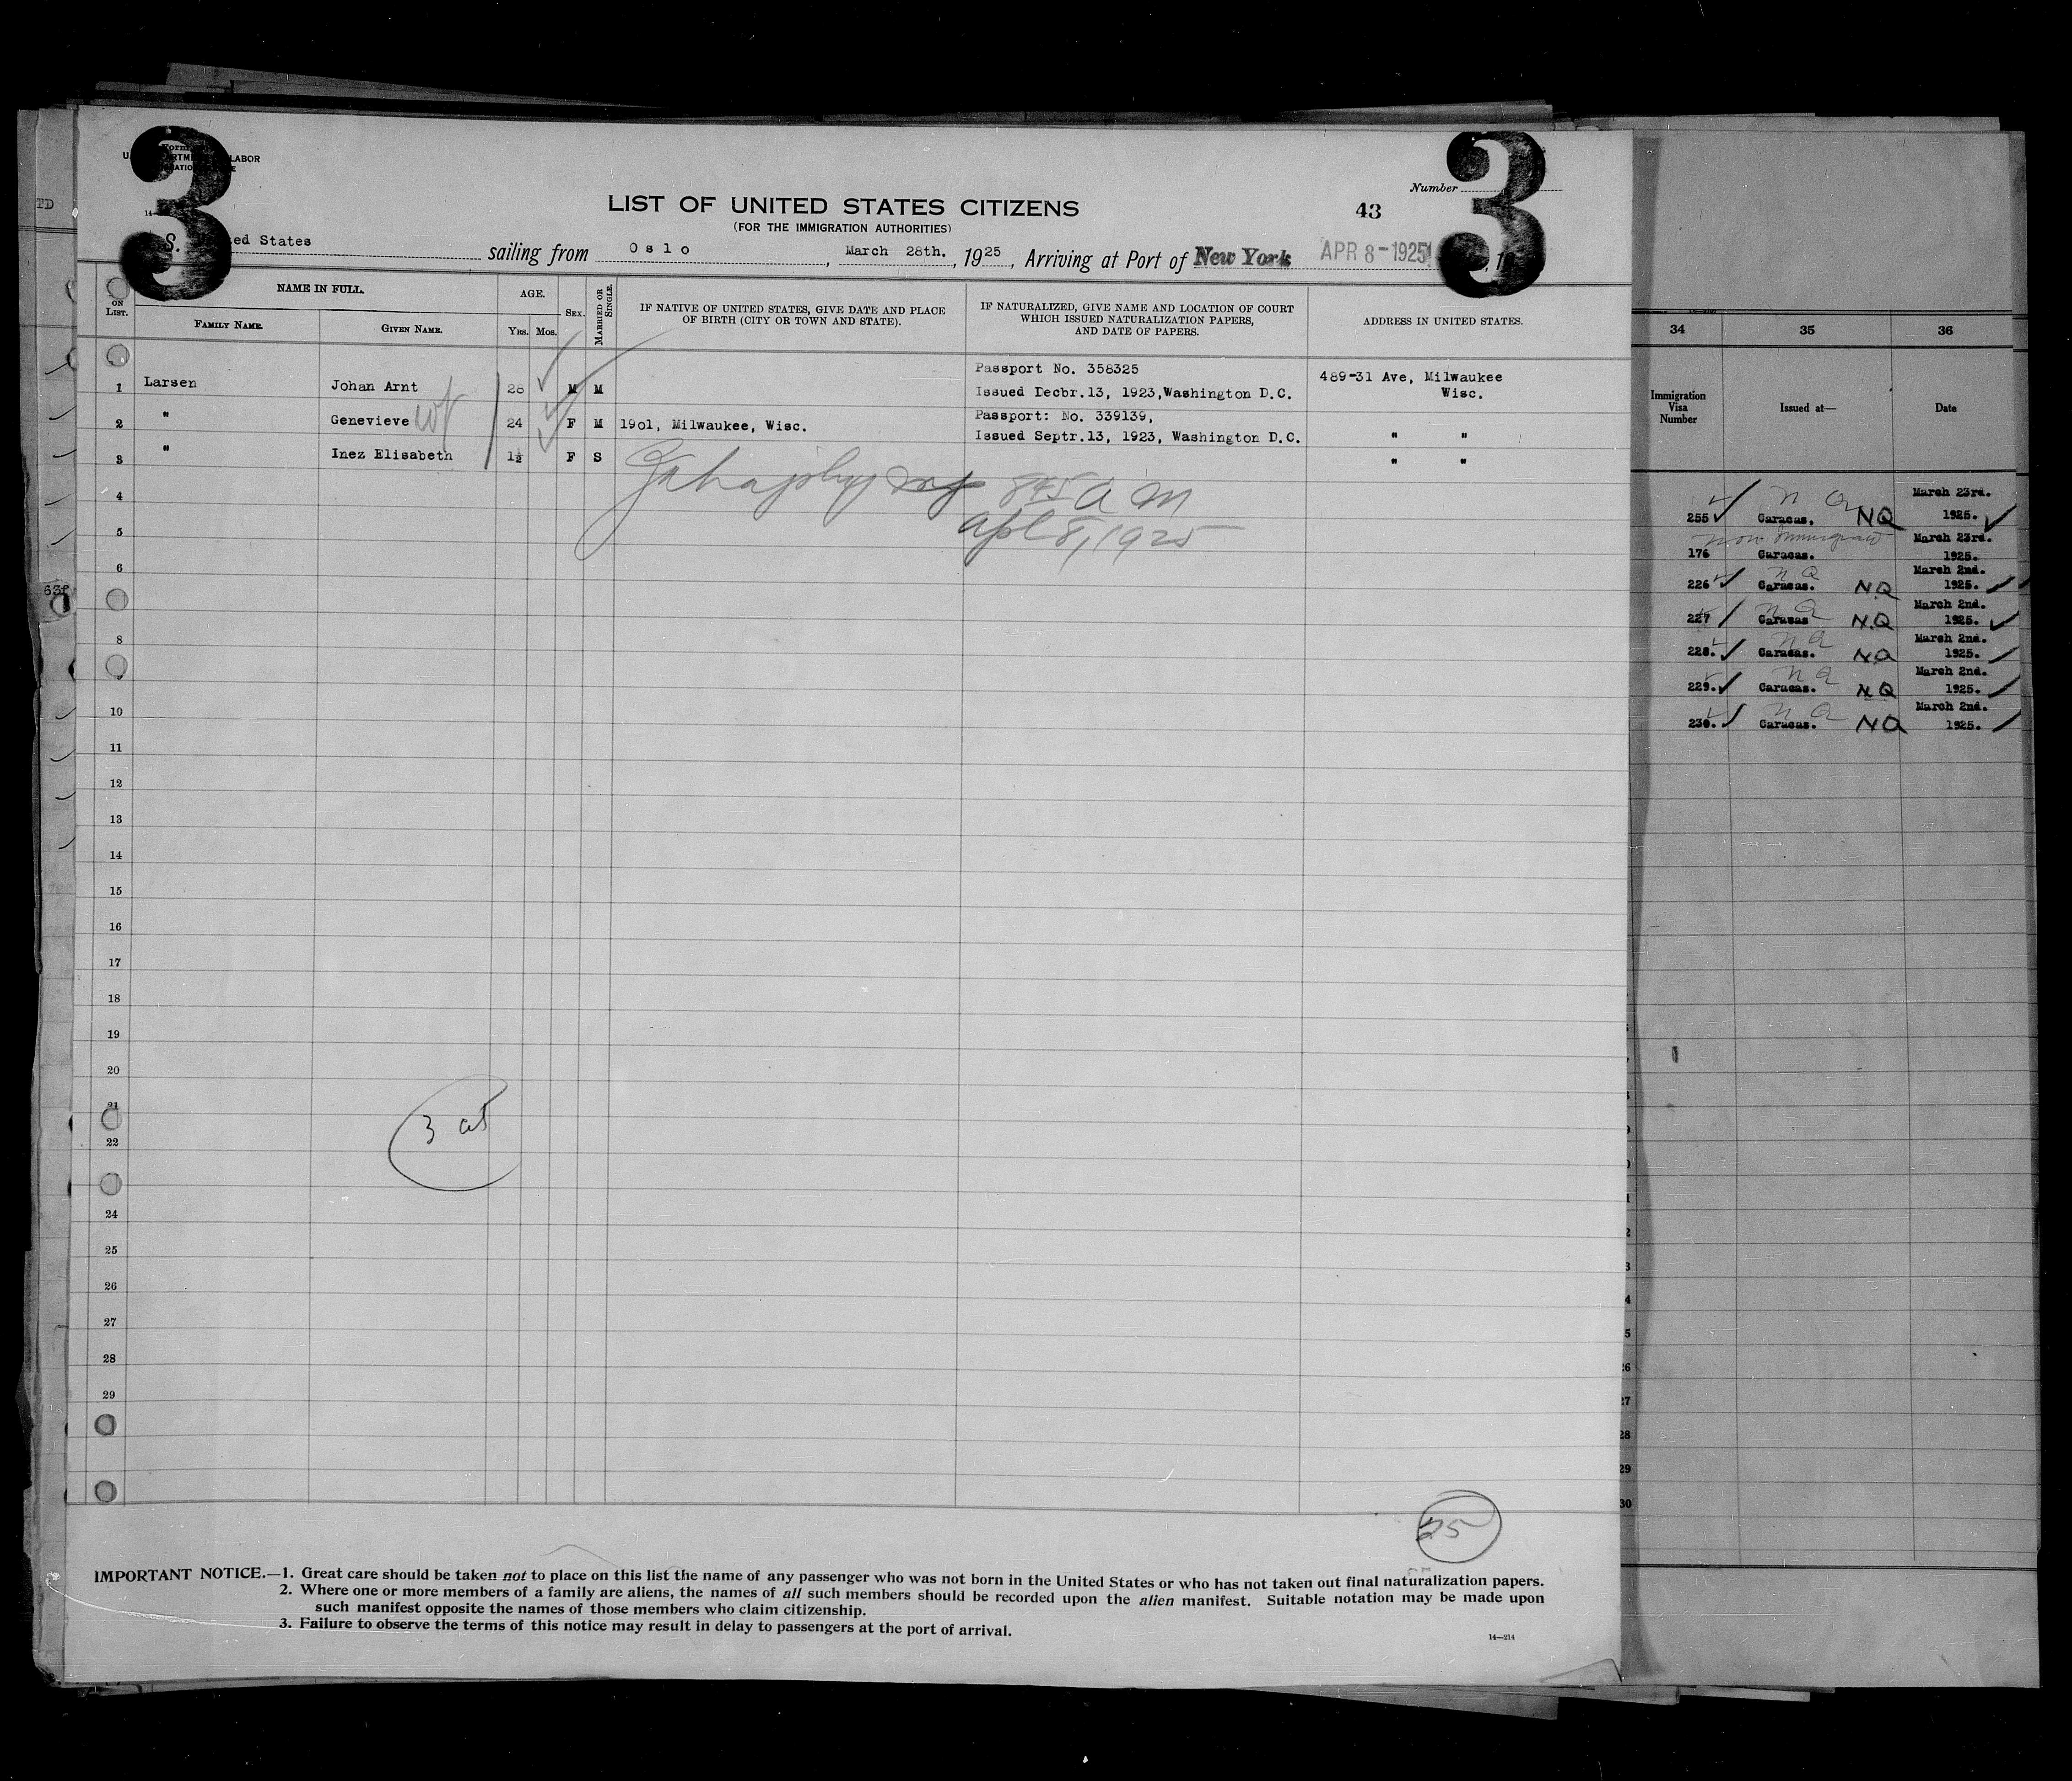 3
3
LABOR
Number
LIST OF UNITED STATES CITIZENS
43
(FOR THE IMMIGRATION AUTHORITIES)
S. United States sailing from Oslo, March 28th., 1925, Arriving at Port of New York APR 8-1925
ON LIST.
NAME IN FULL.
FAMILY NAME.
GIVEN NAME.
AGE.
YRS. MOS.
SEX.
MARRIED OR SINGLE.
IF NATIVE OF UNITED STATES, GIVE DATE AND PLACE
OF BIRTH (CITY OR TOWN AND STATE).
IF NATURALIZED, GIVE NAME AND LOCATION OF COURT
WHICH ISSUED NATURALIZATION PAPERS,
AND DATE OF PAPERS.
ADDRESS IN UNITED STATES.
Passport No. 358325
1 Larsen Johan Arnt 28 M M 489-31 Ave, Milwaukee
Issued Decbr.13, 1923,Washington D.C. Wisc.
Passport: No. 339139,
2 " Genevieve wf 24 F M 19o1, Milwaukee, Wisc.
Issued Septr.13, 1923, Washington D.C. " "
3 " Inez Elisabeth 1½ F S " "
845 a m
apl 8, 1925
4
5
6
8
10
11
12
13
14
15
16
17
18
19
20
21
22
24
25
26
27
28
29
3
25
IMPORTANT NOTICE.—1. Great care should be taken not to place on this list the name of any passenger who was not born in the United States or who has not taken out final naturalization papers.
2. Where one or more members of a family are aliens, the names of all such members should be recorded upon the alien manifest. Suitable notation may be made upon
such manifest opposite the names of those members who claim citizenship.
3. Failure to observe the terms of this notice may result in delay to passengers at the port of arrival.
14—214
34 35 36
Immigration
Visa
Number
Issued at—
Date
March 23rd.
255 Caracas. NQ 1925.
non Immigrant March 23rd.
176 Caracas. 1925.
March 2nd.
226 Caracas. NQ 1925.
March 2nd.
227 Caracas N.Q 1925.
March 2nd.
228. Caracas. NQ 1925.
March 2nd.
229. Caracas. NQ 1925.
March 2nd.
230. Caracas. NQ 1925.
28
29
30